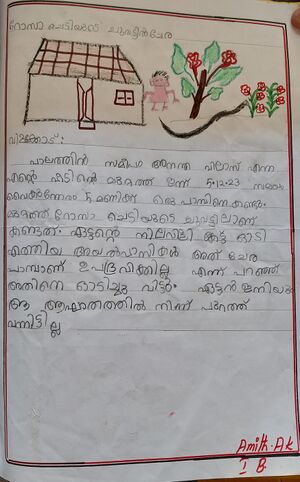 റോസാ ചെടിയുടെ ചുവട്ടിൽ ചേര
വിളക്കോട്:
പാലത്തിൻ സമീപം ആനന്ദ വിലാസ് എന്ന
എന്റെ വീടിന്റെ മുറ്റത്ത് ഇന്ന് 5.12.23 സമയം
വൈകുന്നേരം 5 മണിക്ക് ഒരു പാമ്പിനെ കണ്ടു.
മുറ്റത്ത് റോസാ ചെടിയുടെ ചുവട്ടിലാണ്
കണ്ടത്. ഏട്ടന്റെ നിലവിളി കേട്ട് ഓടി
എത്തിയ അയൽവാസികൾ അത് ചേര
പാമ്പാണ് ഉപദ്രവിക്കില്ല എന്ന് പറഞ്ഞ്
അതിനെ ഓടിച്ചു വിട്ടു. ഏട്ടൻ ഇനിയും
ആ ആഘാതത്തിൽ നിന്ന് പുറത്ത്
വന്നിട്ടില്ല
Amith. Ak
I B